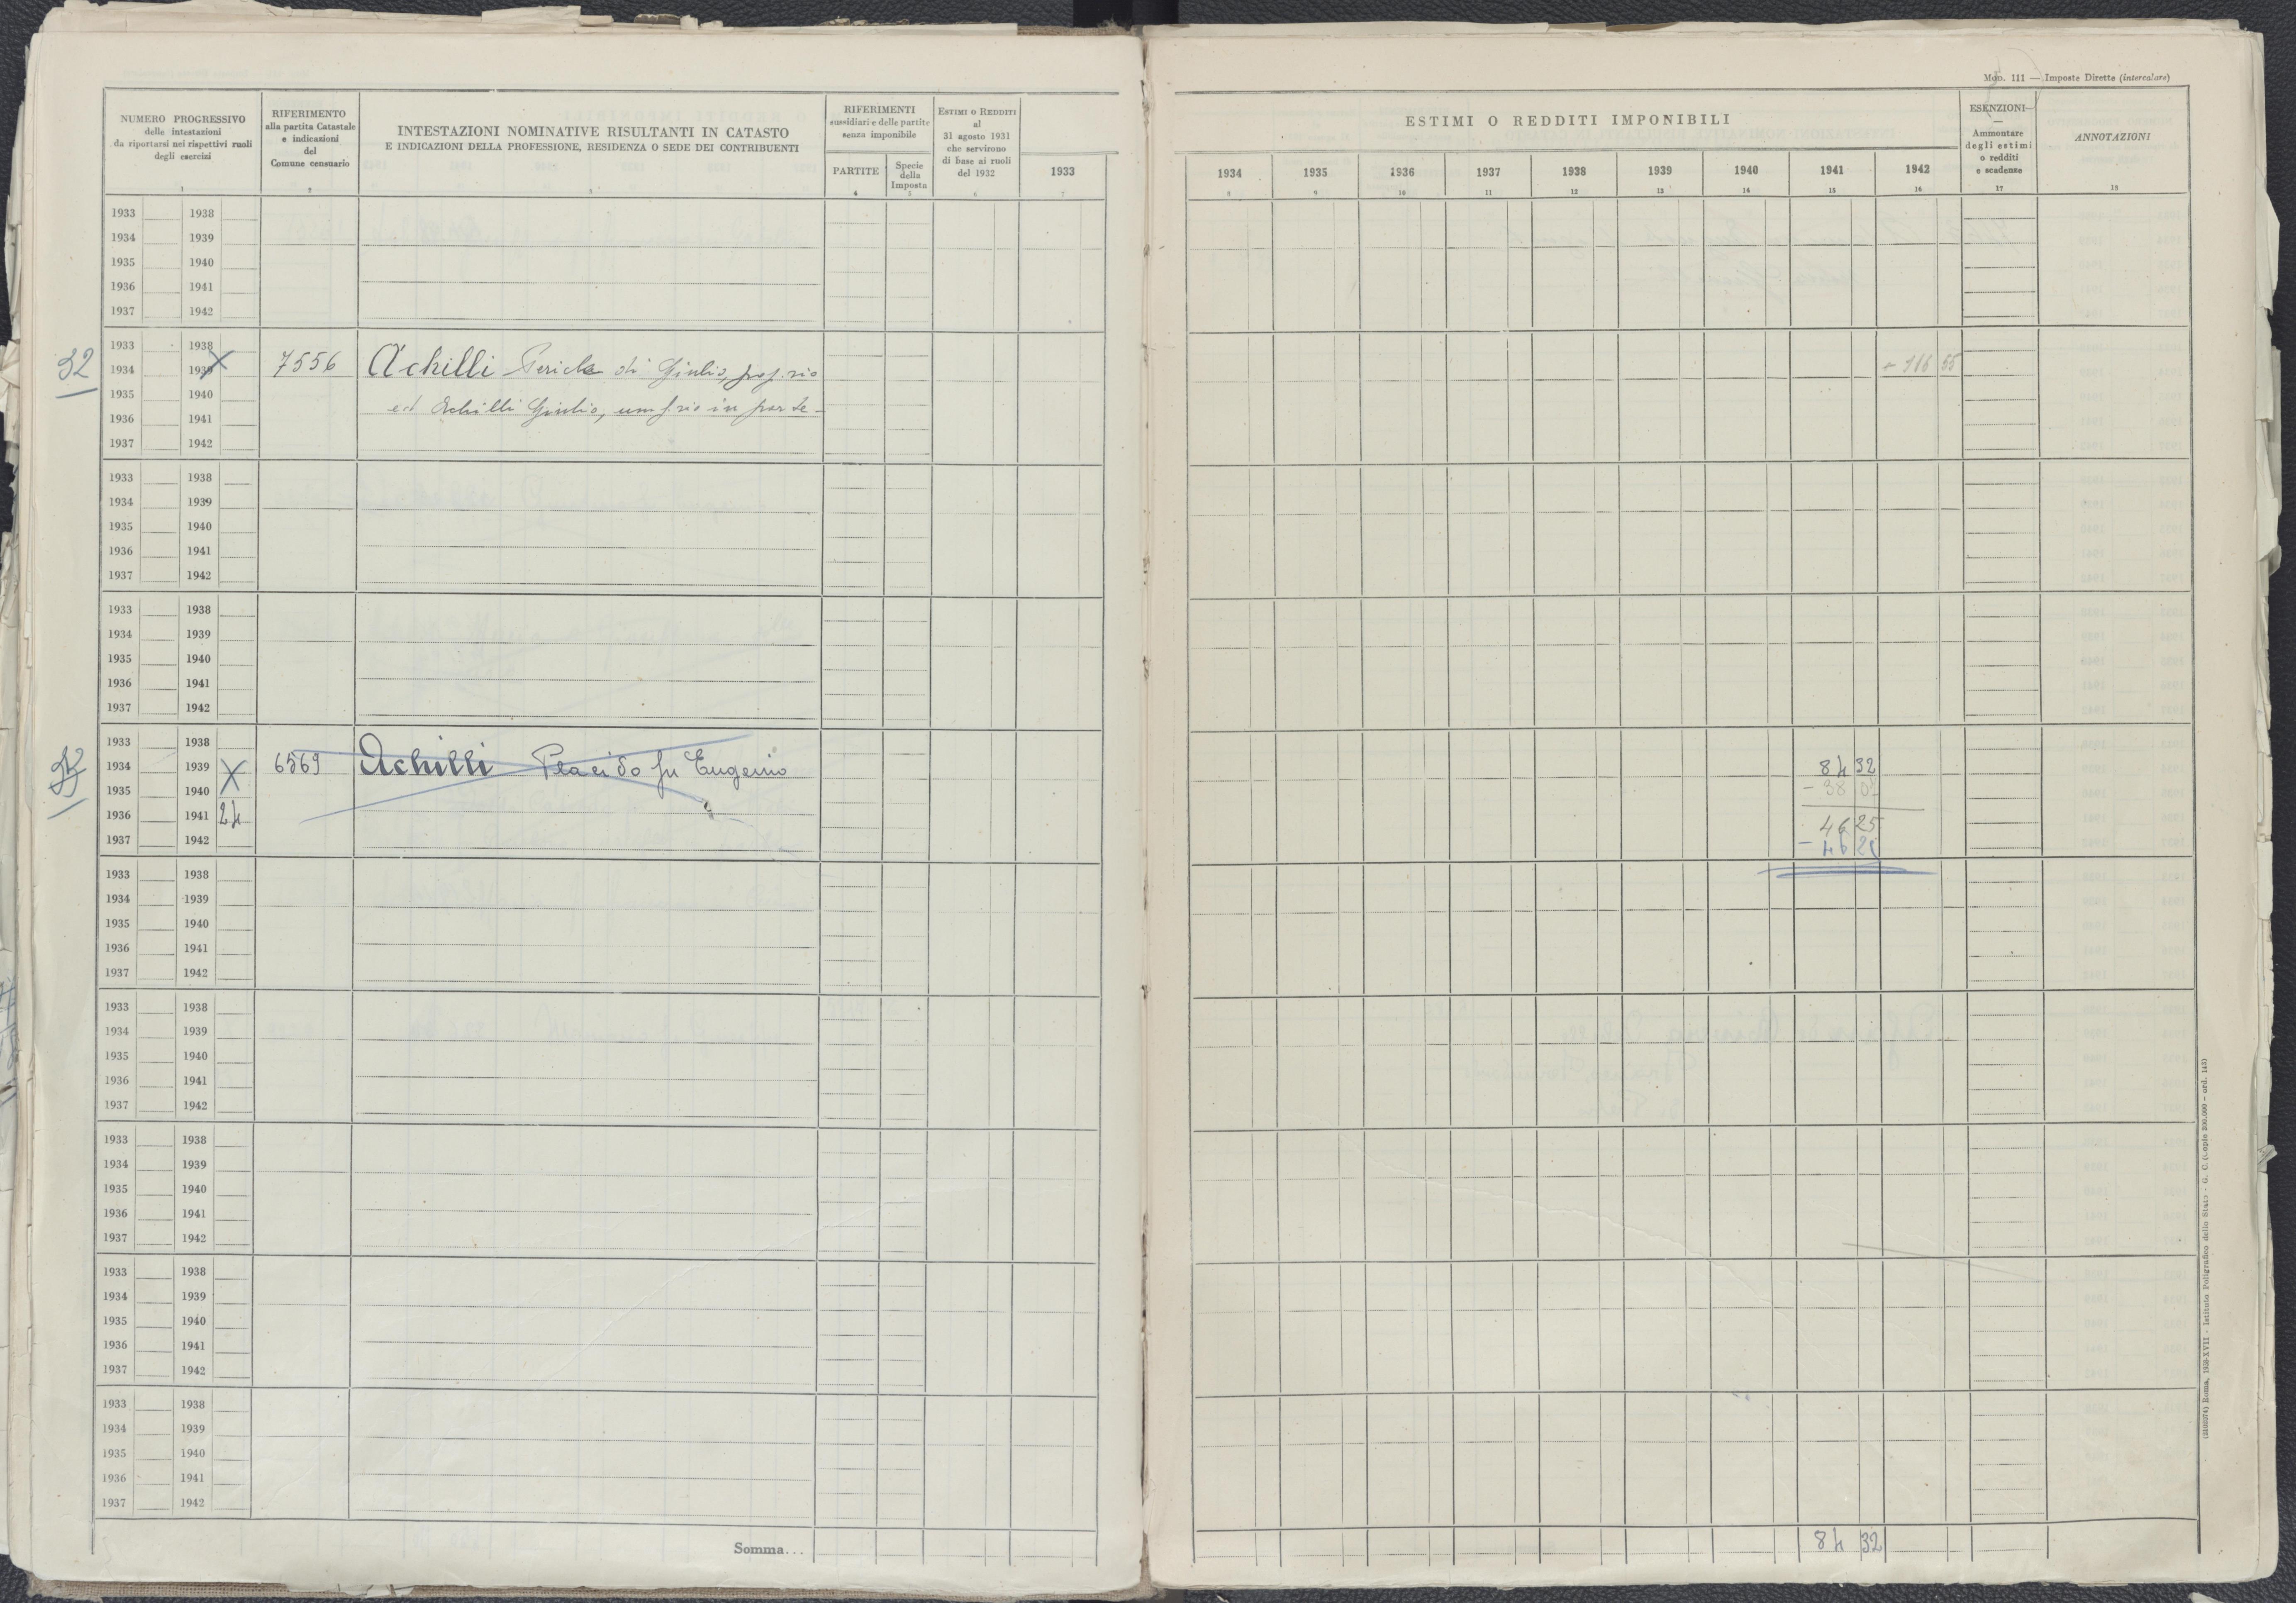 Mod. 111 — Imposte Dirette (intercalare)
NUMERO PROGRESSIVO
delle intestazioni
da riportarsi nei rispettivi ruoli
degli esercizi
1
RIFERIMENTO
alla partita Catastale
e indicazioni
del
Comune censuario
2
INTESTAZIONI NOMINATIVE RISULTANTI IN CATASTO
E INDICAZIONI DELLA PROFESSIONE, RESIDENZA O SEDE DEI CONTRIBUENTI
3
RIFERIMENTI
sussidiari e delle partite
senza imponibile
PARTITE
4
Specie
della
Imposta
5
ESTIMI O REDDITI
al
31 agosto 1931
che servirono
di base ai ruoli
del 1932
6
1933
7
ESTIMI O REDDITI IMPONIBILI
1934 1935 1936 1937 1938 1939 1940 1941 1942
8 9 10 11 12 13 14 15 16
ESENZIONI
—
Ammontare
degli estimi
o redditi
e scadenze
17
ANNOTAZIONI
18
1933 1938
1934 1939
1935 1940
1936 1941
1937 1942
32
1933 1938
1934 1939 X 7556 Achilli Pericle di Giulio, propr.rio + 116 55
1935 1940
ed Achilli Giulio, usuf.rio in parte
1936 1941
1937 1942
1933 1938
1934 1939
1935 1940
1936 1941
1937 1942
1933 1938
1934 1939
1935 1940
1936 1941
1937 1942
1933 1938
1934 1939 X 6569 Achilli Placido fu Eugenio 84 32
1935 1940 X - 38 07
1936 1941 24 46 25
1937 1942 - 46 25
1933 1938
1934 1939
1935 1940
1936 1941
1937 1942
1933 1938
1934 1939
1935 1940
1936 1941
1937 1942
1933 1938
1934 1939
1935 1940
1936 1941
1937 1942
1933 1938
1934 1939
1935 1940
1936 1941
1937 1942
1933 1938
1934 1939
1935 1940
1936 1941
1937 1942
Somma... 84 32